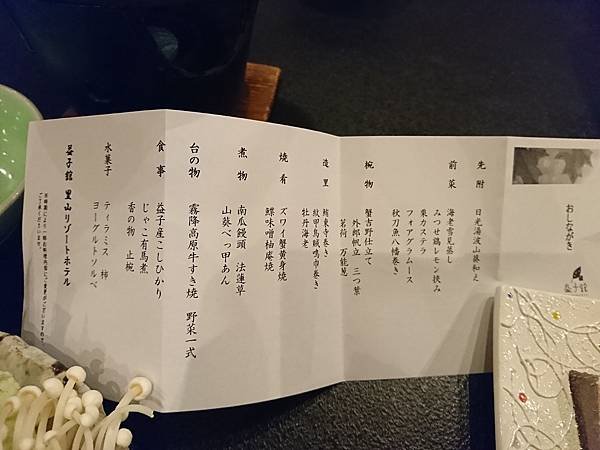 おしながき
益子館
先附 日光湯波山葵和え
前菜 海老雪見蒸し
みつせ鶏レモン挟み
栗カステラ
フォアグラムース
秋刀魚八幡巻き
椀物 蟹吉野仕立て
外郎帆立 三つ葉
茗荷 万能葱
造里 鮪東寺巻き
紋甲烏賊鳴市巻き
牡丹海老
焼肴 ズワイ蟹黄身焼
鰈味噌柚庵焼
煮物 南瓜饅頭 法蓮草
山葵べっ甲あん
台の物 霧降高原牛すき焼 野菜一式
食事 益子産こしひかり
じゃこ有馬煮
香の物 止椀
水菓子 ティラミス 柿
ヨーグルトソルベ
益子館 里山リゾートホテル